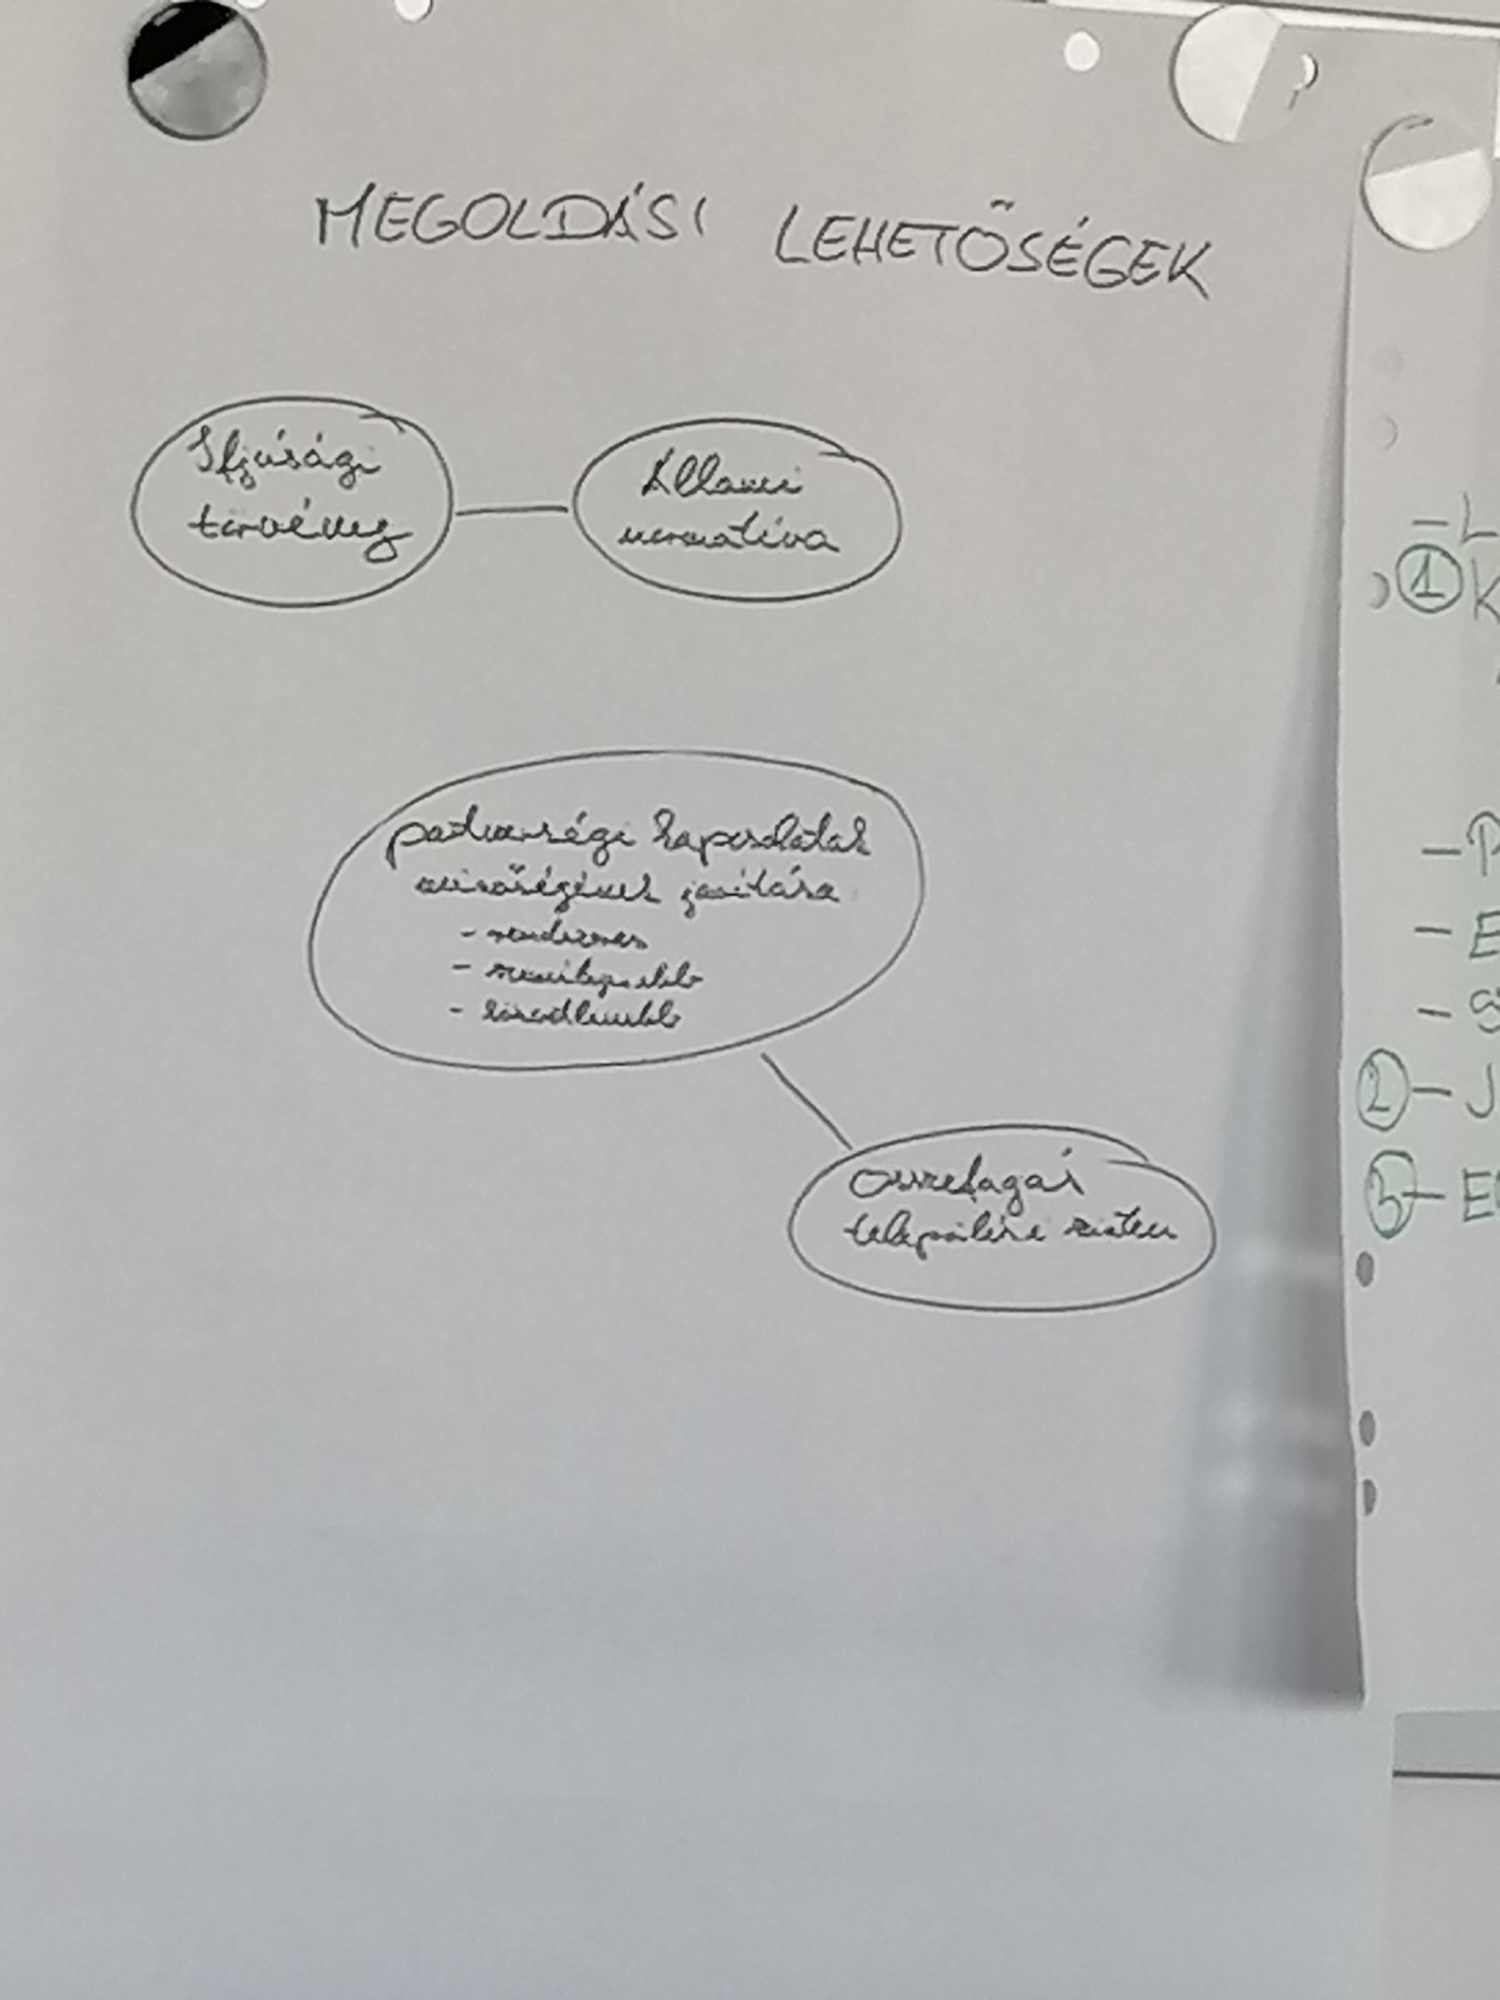 MEGOLDÁSI LEHETŐSÉGEK
Ifjúsági
törvény
Állami
normatíva
partnerségi kapcsolatok
minőségének javítása
- rendszeres
-
- közvetlenebb
összefogás
települési szinten
- L
① K
- P
- E
- S
② - J
③ -